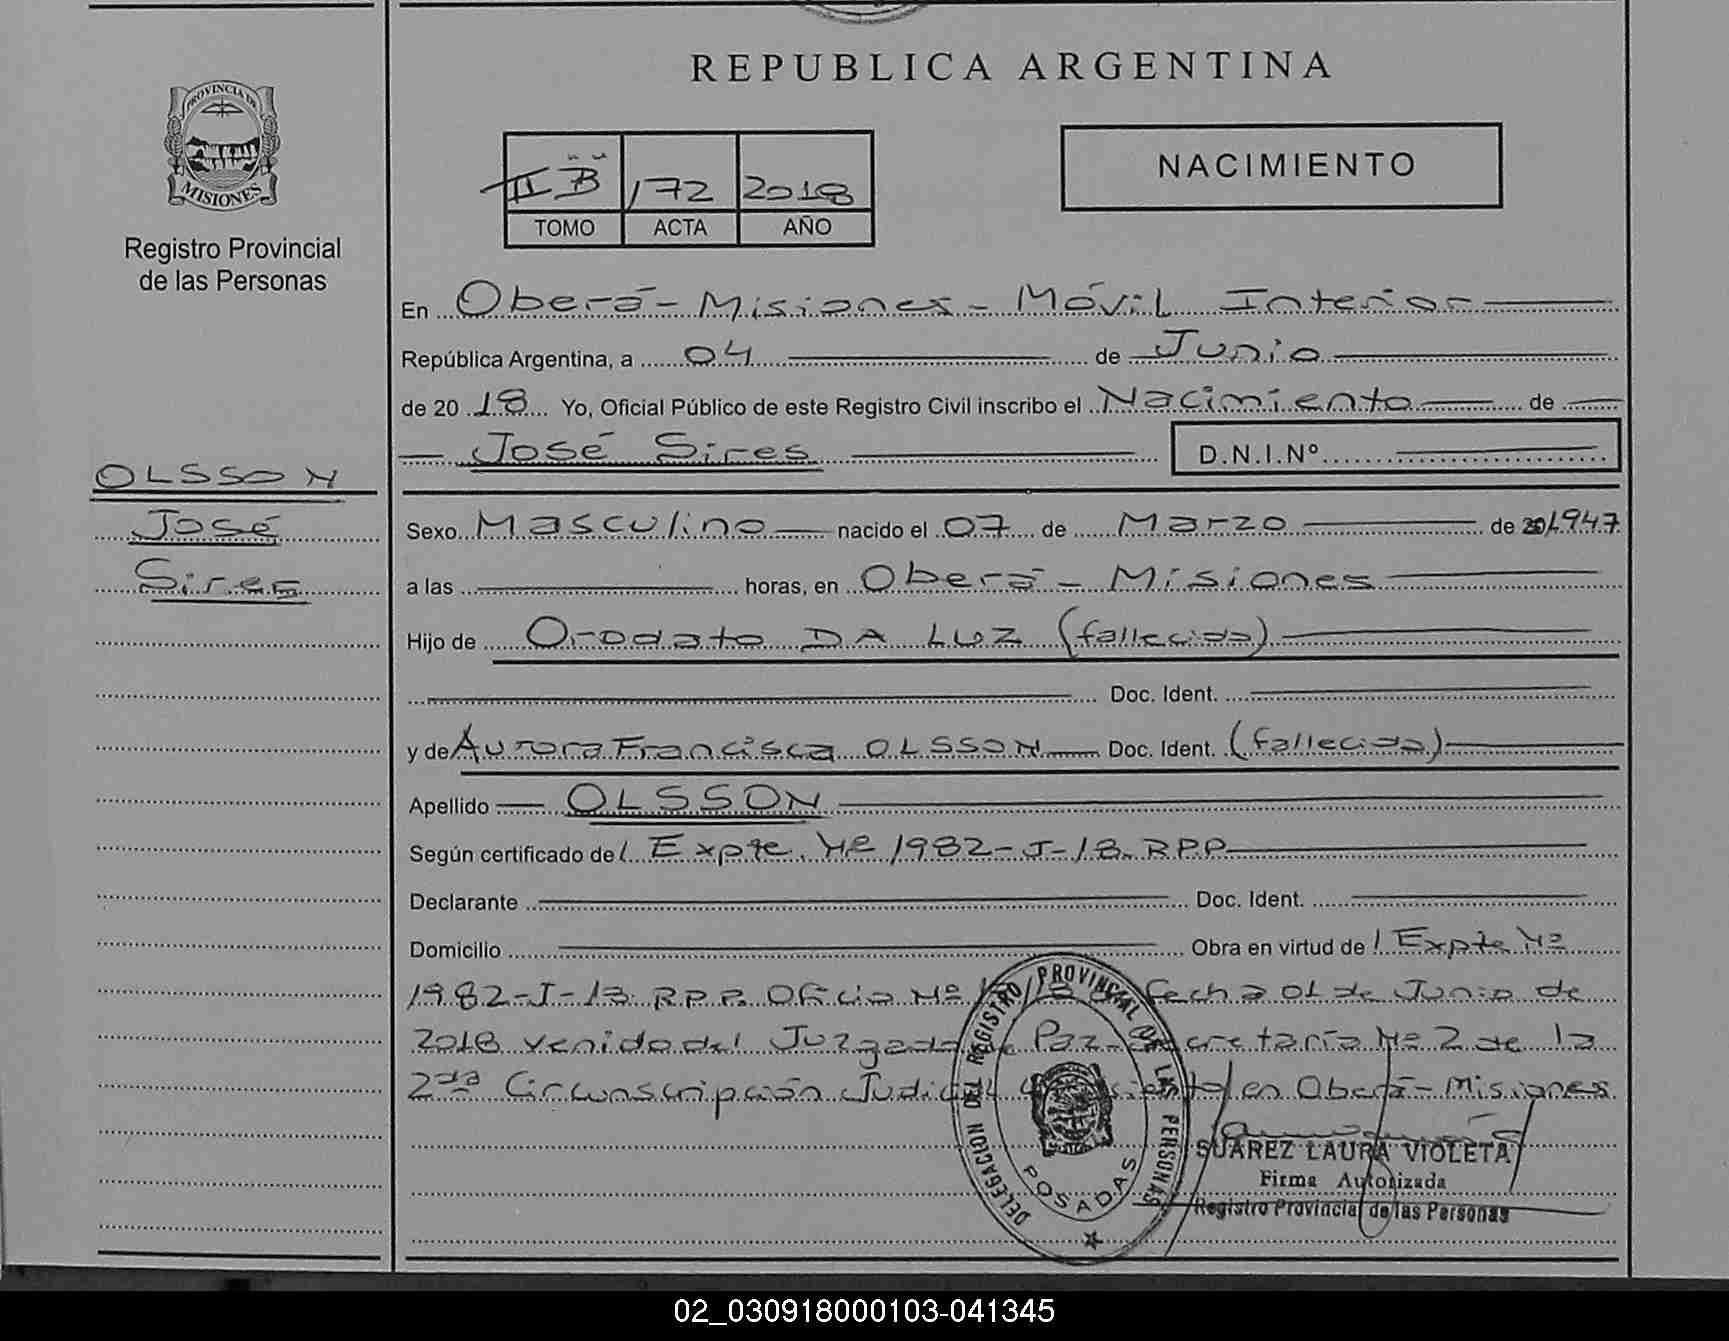 REPUBLICA ARGENTINA
PROVINCIA DE
MISIONES
Registro Provincial
de las Personas
II "B" 172 2018
TOMO ACTA AÑO
NACIMIENTO
En Oberá - Misiones - Móvil Interior
República Argentina, a 04 de Junio
de 20 18 Yo, Oficial Público de este Registro Civil inscribo el Nacimiento de
José Sires D.N.I.Nº
OLSSON
José
Sires
Sexo Masculino nacido el 07 de Marzo de 1947
a las horas, en Oberá - Misiones
Hijo de Orodato DA LUZ (fallecido)
Doc. Ident.
y de Aurora Francisca OLSSON Doc. Ident. (fallecida)
Apellido OLSSON
Según certificado de l Expte. Nº 1982-J-13 R.P.P
Declarante Doc. Ident.
Domicilio Obra en virtud de l Expte Nº
1982-J-13 R.P.P. Oficio Nº fecha 01 de Junio de
2018 venido del Juzgado de Paz Secretaría Nº 2 de la
2da Circunscripción Judicial en Oberá - Misiones
DELEGACION DEL REGISTRO PROVINCIAL DE LAS PERSONAS
POSADAS
SUAREZ LAURA VIOLETA
Firma Autorizada
Registro Provincial de las Personas
02_030918000103-041345